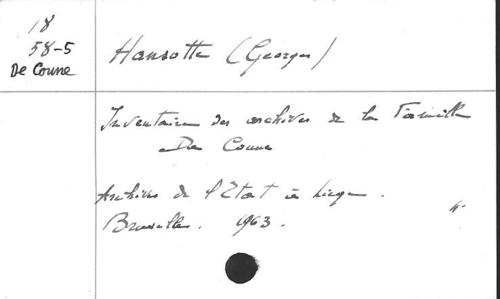 18
58-5
De Coune
Hansotte (Georges)
Inventaire des archives de la Famille
De Coune
Archives de l'Etat à Liège.
Bruxelles. 1963.